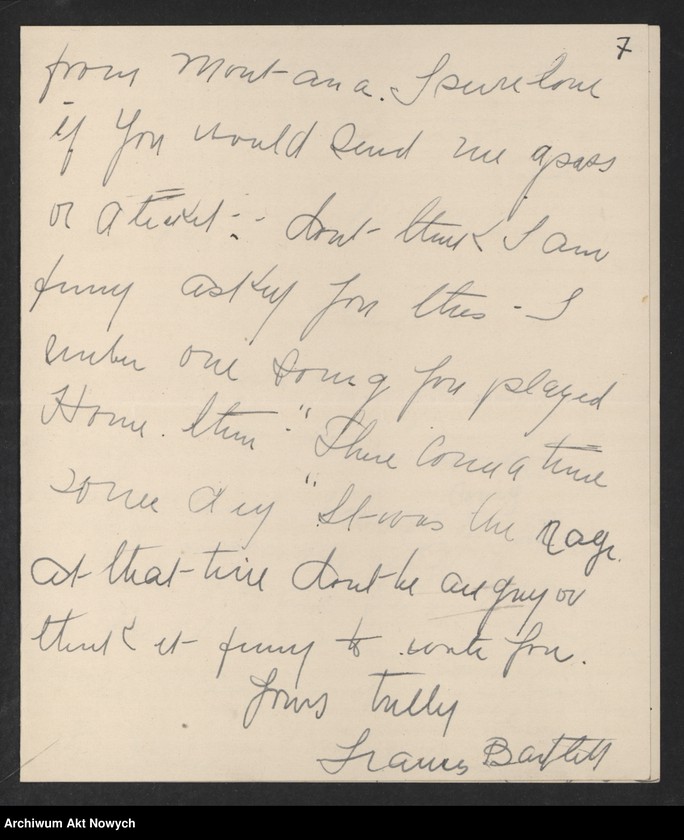 7
from Montana. I sure love
if you would send me a pass
or a ticket -- dont think I am
funny asking you this - I
ember one song you played
Home. then "There come a time
some day" It was the rage
at that time dont be angry or
think it funny to write you.
Yours trully
Frances Bartlett
Archiwum Akt Nowych